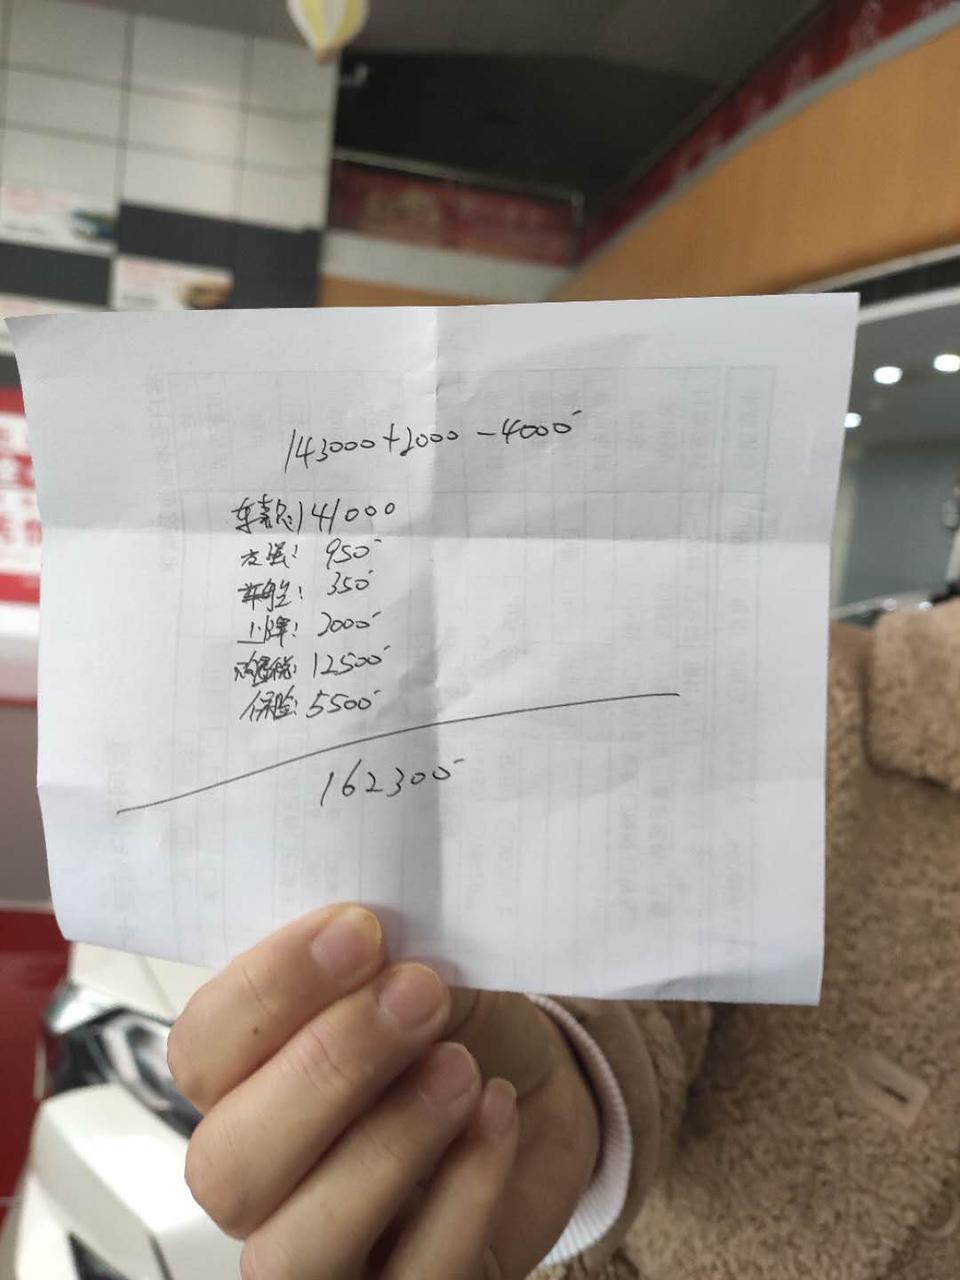 143000+2000-4000
车款:141000
交强:950
车船:350
上牌:2000
购置税:12500
保险:5500
162300